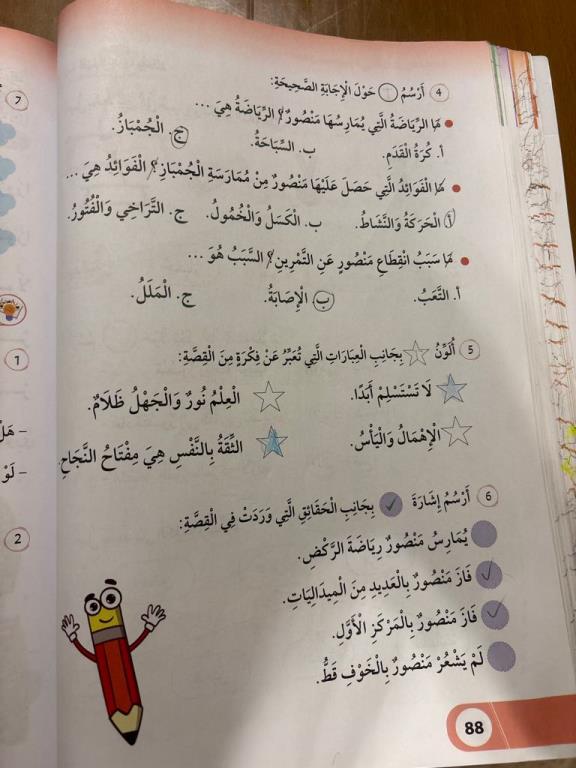 4 أَرْسُمُ حَوْلَ الْإِجَابَةِ الصَّحِيحَةِ:
• مَا الرِّيَاضَةُ الَّتِي يُمَارِسُهَا مَنْصُورٌ؟ الرِّيَاضَةُ هِيَ ...
أ. كُرَةُ الْقَدَمِ. ب. السِّبَاحَةُ. ج. الْجُمْبَازُ.
• مَا الْفَوَائِدُ الَّتِي حَصَلَ عَلَيْهَا مَنْصُورٌ مِنْ مُمَارَسَةِ الْجُمْبَازِ؟ الْفَوَائِدُ هِيَ ...
أ. الْحَرَكَةُ وَالنَّشَاطُ. ب. الْكَسَلُ وَالْخُمُولُ. ج. التَّرَاخِي وَالْفُتُورُ.
• مَا سَبَبُ انْقِطَاعِ مَنْصُورٍ عَنِ التَّمْرِينِ؟ السَّبَبُ هُوَ ...
أ. التَّعَبُ. ب. الْإِصَابَةُ. ج. الْمَلَلُ.
5 أُلَوِّنُ بِجَانِبِ الْعِبَارَاتِ الَّتِي تُعَبِّرُ عَنْ فِكْرَةٍ مِنَ الْقِصَّةِ:
لَا تَسْتَسْلِمْ أَبَدًا. الْعِلْمُ نُورٌ وَالْجَهْلُ ظَلَامٌ.
الْإِهْمَالُ وَالْيَأْسُ. الثِّقَةُ بِالنَّفْسِ هِيَ مِفْتَاحُ النَّجَاحِ.
6 أَرْسُمُ إِشَارَةَ ✓ بِجَانِبِ الْحَقَائِقِ الَّتِي وَرَدَتْ فِي الْقِصَّةِ:
يُمَارِسُ مَنْصُورٌ رِيَاضَةَ الرَّكْضِ.
فَازَ مَنْصُورٌ بِالْعَدِيدِ مِنَ الْمِيدَالِيَّاتِ.
فَازَ مَنْصُورٌ بِالْمَرْكَزِ الْأَوَّلِ.
لَمْ يَشْعُرْ مَنْصُورٌ بِالْخَوْفِ قَطُّ.
88
7
1
– هَلْ
– لَوْ
2